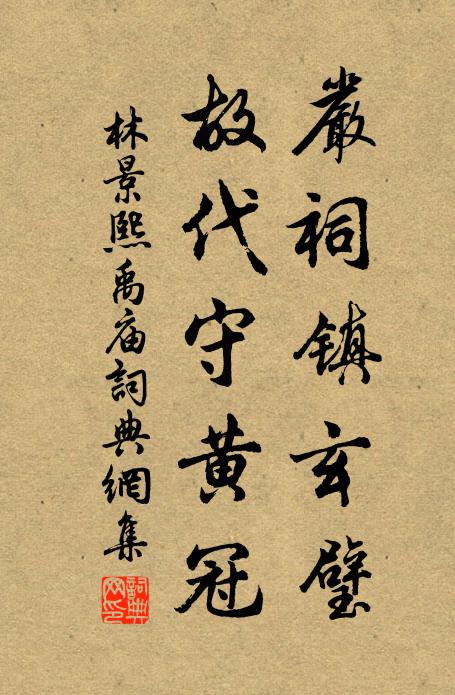 嚴祠鎮玄璧
故代守黃冠
林景熙禹庙詞典網集
詞典网印